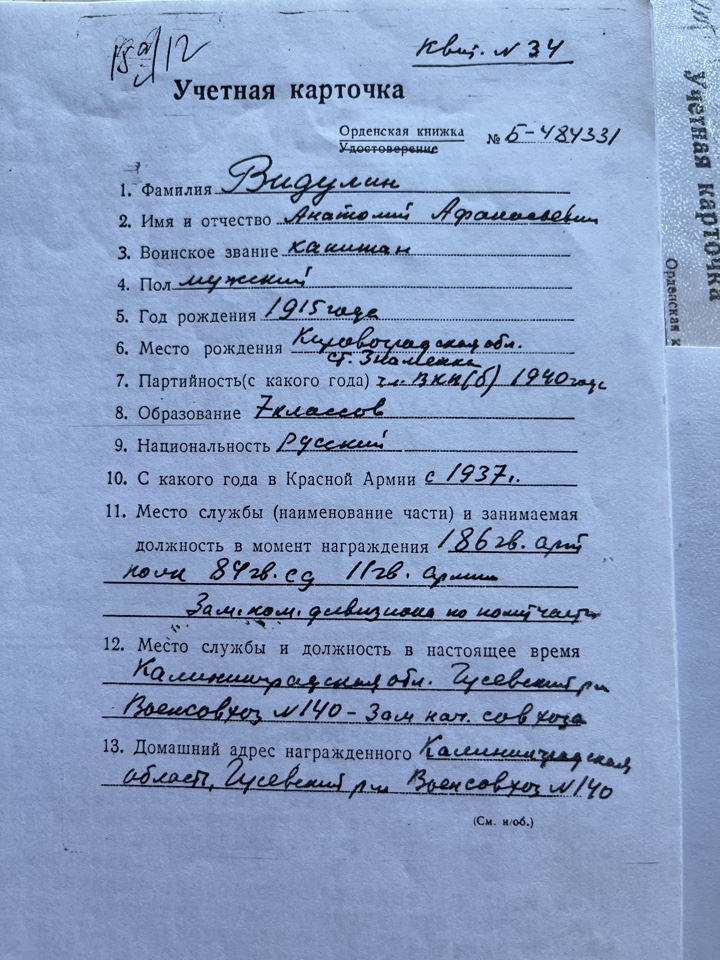 Квит. N 34
Учетная карточка
Орденская книжка
Удостоверение
№ Б-484331
1. Фамилия Видулин
2. Имя и отчество Анатолий Афанасьевич
3. Воинское звание капитан
4. Пол мужский
5. Год рождения 1915 года
6. Место рождения Кировоградская обл.
ст. Знаменка
7. Партийность(с какого года) чл. ВКП(б) 1940 года
8. Образование 7 классов
9. Национальность русский
10. С какого года в Красной Армии с 1937г.
11. Место службы (наименование части) и занимаемая
должность в момент награждения 186 гв. арт
полк 84 гв. сд 11 гв. армии
Зам. ком. дивизиона по полит части
12. Место службы и должность в настоящее время
Калининградская обл. Гусевский р-н
Военсовхоз N 140 - Зам нач. совхоза
13. Домашний адрес награжденного Калининградская
область, Гусевский р-н Военсовхоз N 140
(См. н/об.)
Учетная карточка
Орденская к